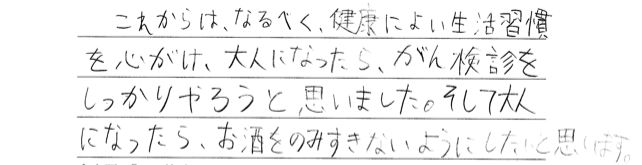 これからは、なるべく、健康によい生活習慣
を心がけ、大人になったら、がん検診を
しっかりやろうと思いました。そして大人
になったら、お酒をのみすぎないようにしたいと思います。